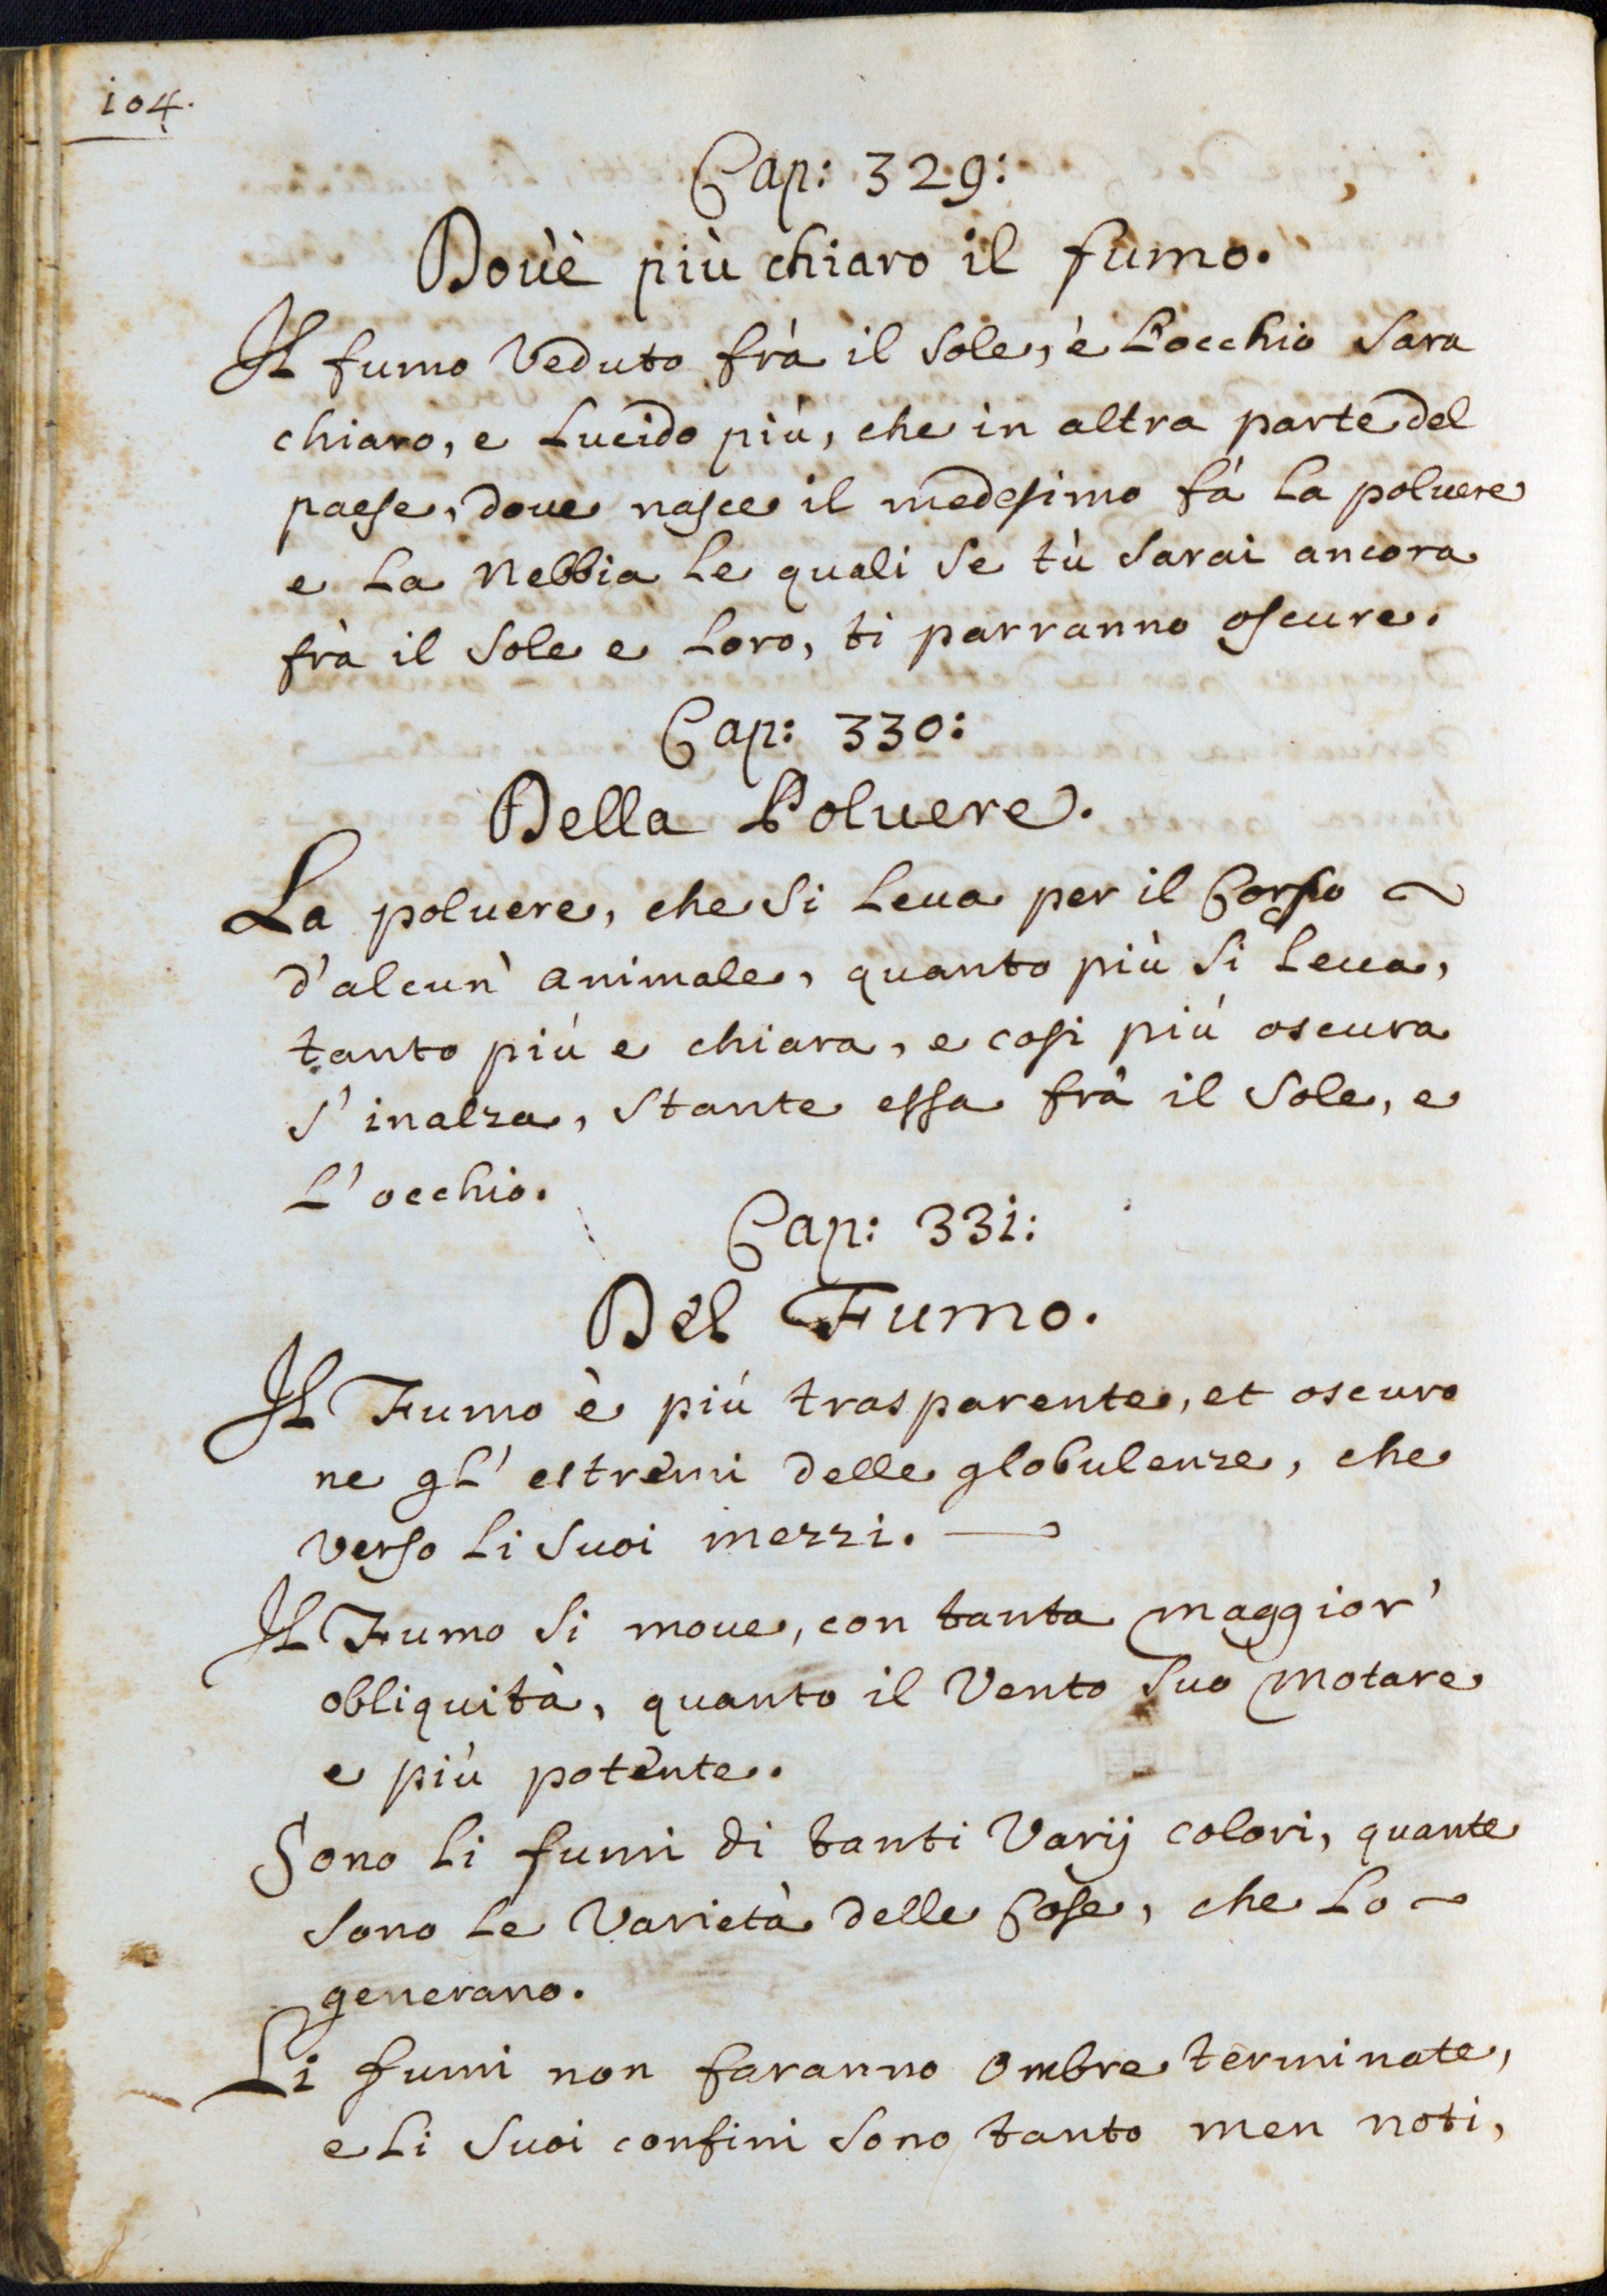 104.
Cap: 329:
Dov'è più chiaro il fumo.
Il fumo veduto frà il sole, è L'occhio sara
chiaro, e Lucido più, che in altra parte del
paese, doue nasce il medesimo fà La poluere
e La Nebbia Le quali se tù sarai ancora
frà il sole e Loro, ti parranno oscure.
Cap: 330:
Della Poluere.
La poluere, che si Leua per il Corso ~
d'alcun' animale, quanto più si Leua,
tanto più e chiara, e cosi più oscura
s'inalza, stante essa frà il sole, e
L'occhio.
Cap: 331:
Del Fumo.
Il Fumo è più trasparente, et oscuro
ne gl' estremi delle globulenze, che
verso Li suoi mezzi. —
Il Fumo si moue, con tanta maggior'
obliquità, quanto il Vento suo motare
e più potente.
Sono Li fumi di tanti Varij colori, quante
sono Le Varietà delle Cose, che Lo ~
generano.
Li fumi non faranno ombre terminate,
e Li suoi confini sono tanto men noti,